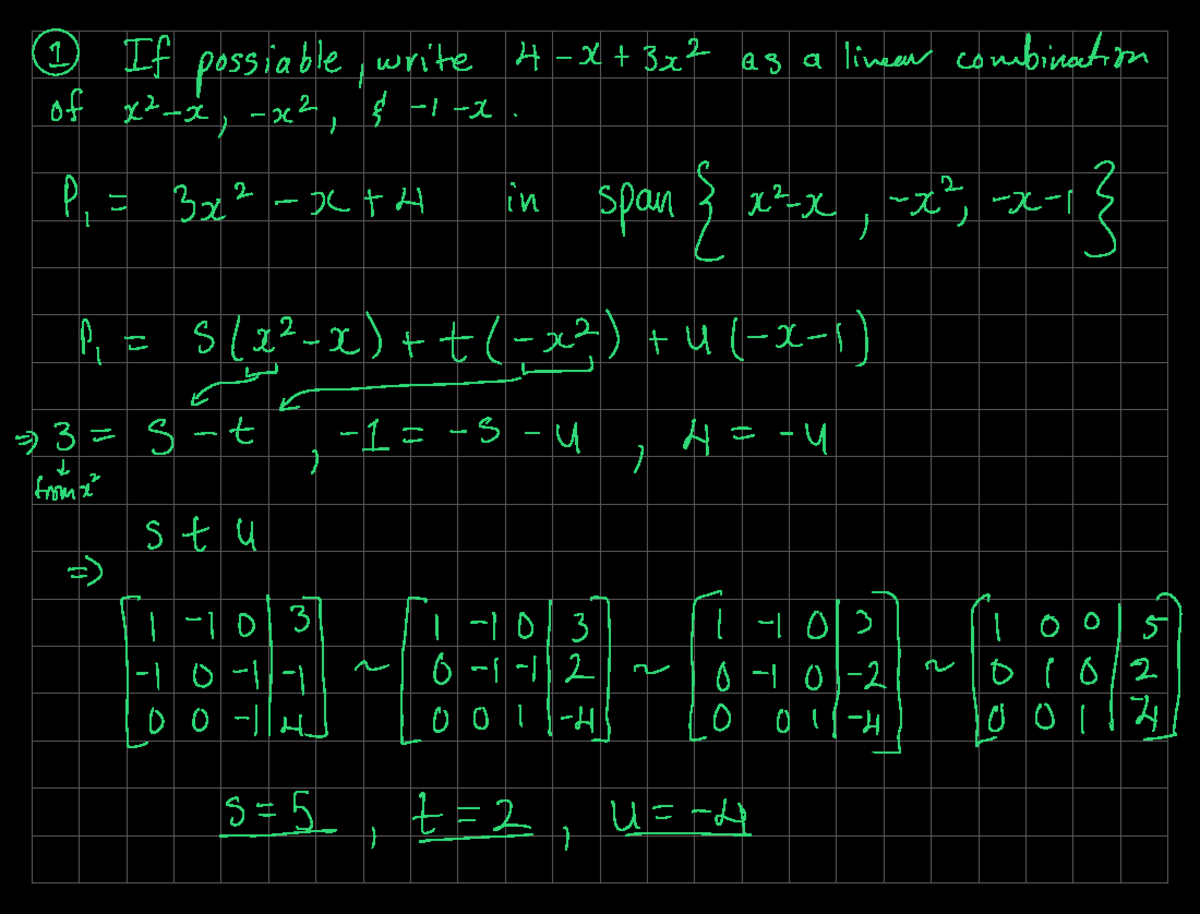 ① If possiable, write 4 - x + 3x² as a linear combination
of x² - x, -x², & -1 - x.
P₁ = 3x² - x + 4 in span { x² - x, -x², -x - 1 }
P₁ = s(x² - x) + t(-x²) + u(-x - 1)
⇒ 3 = s - t, -1 = -s - u, 4 = -u
↓
from x²
s t u
⇒
[1 -1 0 | 3] [1 -1 0 | 3] [1 -1 0 | 3] [1 0 0 | 5]
[-1 0 -1 | -1] ~ [0 -1 -1 | 2] ~ [0 -1 0 | -2] ~ [0 1 0 | 2]
[0 0 -1 | 4] [0 0 1 | -4] [0 0 1 | -4] [0 0 1 | 4]
s = 5, t = 2, u = -4